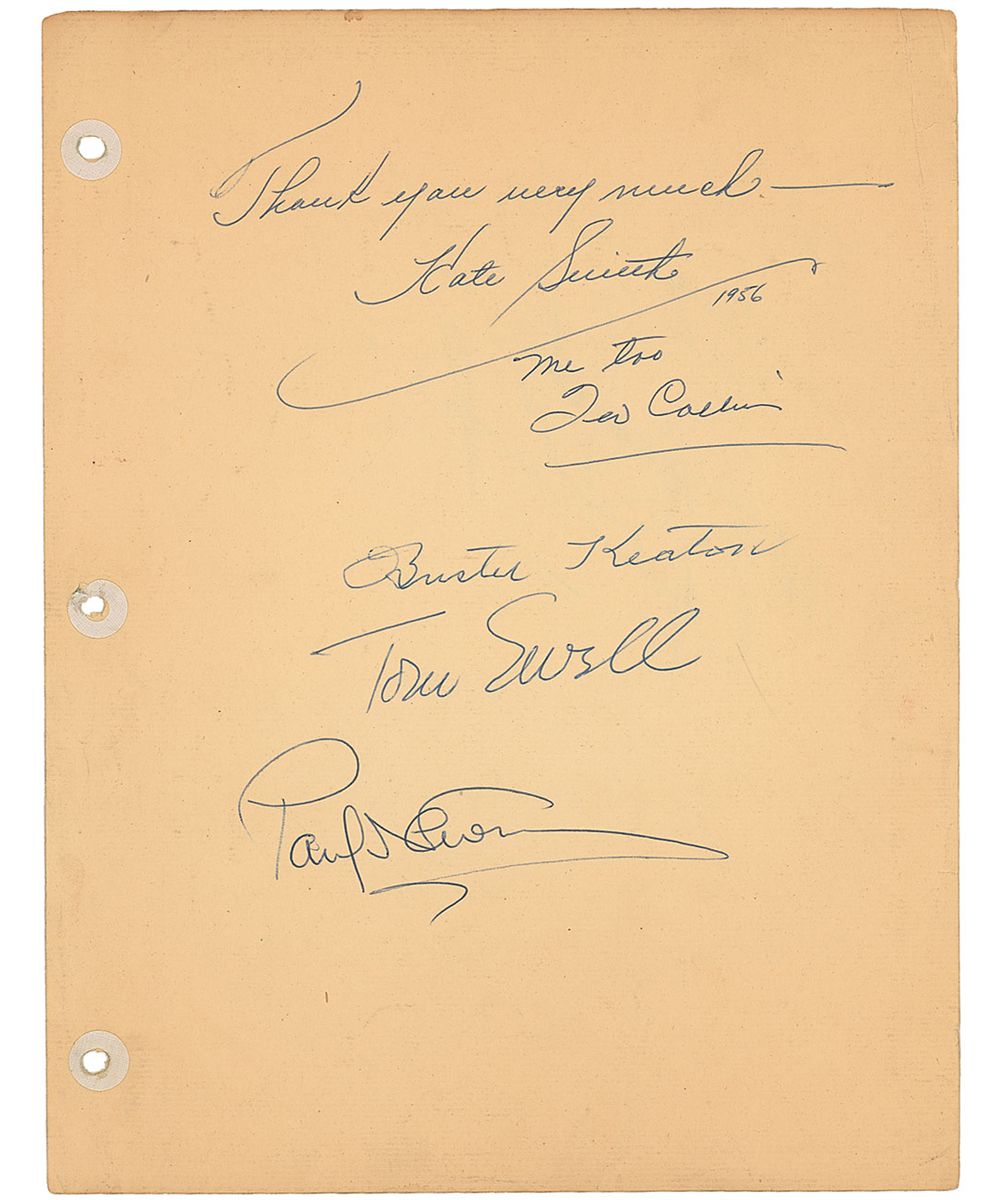 Thank you very much —
Kate Smith
1956
me too
Ted Collins
Buster Keaton
Tom Ewell
Paul